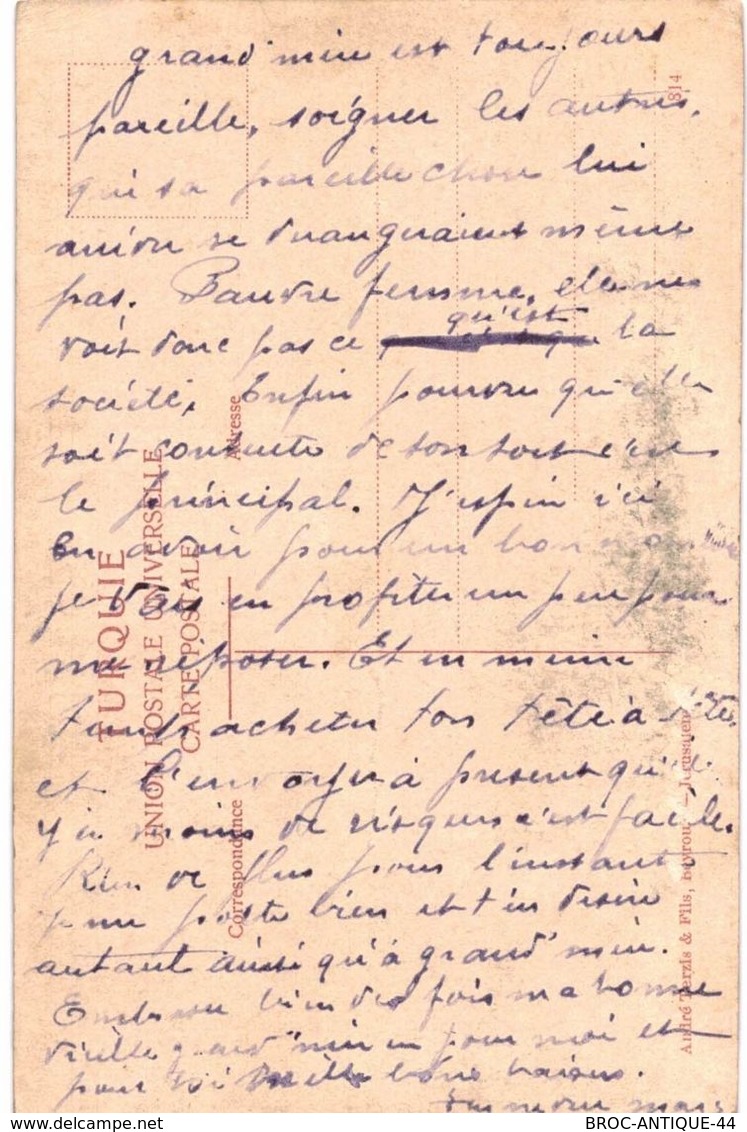 grand'mère est toujours
pareille, soigner les autres,
qui sa pareille chose lui
se même
pas. Pauvre femme, elle ne
voit donc pas ce qu'est la
société, Enfin pourvu qu'elle
soit contente de son sort c'est
le principal. J'espère ici
en avoir pour un bon
je vais en profiter un peu pour
me reposer. Et en même
acheter ton tête à tête
et l'envoyer à présent qu'il
y a moins de risques c'est facile.
Rien de plus pour l'instant
je me porte bien et t'en désire
autant ainsi qu'à grand'mère.
Embrasse bien des fois ma bonne
vieille grand'mère pour moi et
pour toi mille bons baisers.
Ton neveu
814
TURQUIE
UNION POSTALE UNIVERSELLE
CARTE POSTALE
Adresse
Correspondance
André Terzis & Fils, Beyrouth – Jérusalem
BROC-ANTIQUE-44